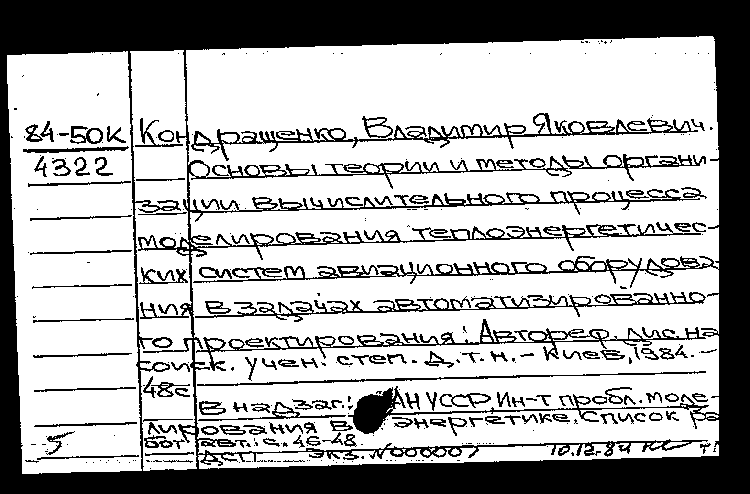 84-50К Кондращенко, Владимир Яковлевич.
4322 Основы теории и методы органи-
зации вычислительного процесса
моделирования теплоэнергетичес-
ких систем авиационного оборудова-
ния в задачах автоматизированно-
го проектирования: Автореф. дис. на
соиск. учен. степ. д.т.н. - Киев, 1984. -
48с
В надзаг.: АН УССР, Ин-т пробл. моде-
лирования в энергетике. Список ра-
бот авт.: с. 46-48
5 ДСП Экз. N000007 10.12.84